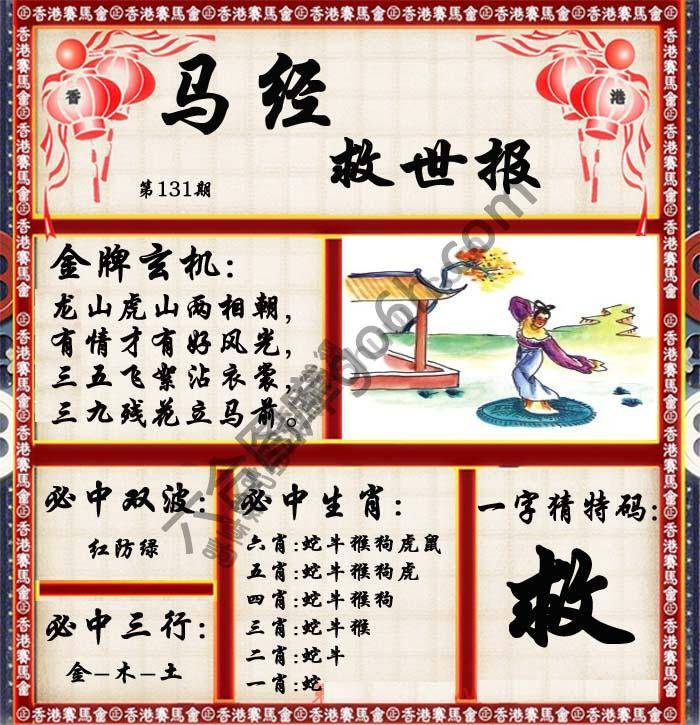 香港賽馬會㊣香港賽馬會㊣香港賽馬會㊣香港賽馬會㊣香港賽馬會㊣香港賽馬會
香 港
马经
救世报
第131期
金牌玄机:
龙山虎山两相朝,
有情才有好风光,
三五飞絮沾衣裳,
三九残花立马前。
必中双波:
红防绿
必中三行:
金-木-土
必中生肖:
六肖:蛇牛猴狗虎鼠
五肖:蛇牛猴狗虎
四肖:蛇牛猴狗
三肖:蛇牛猴
二肖:蛇牛
一肖:蛇
一字猜特码:
救